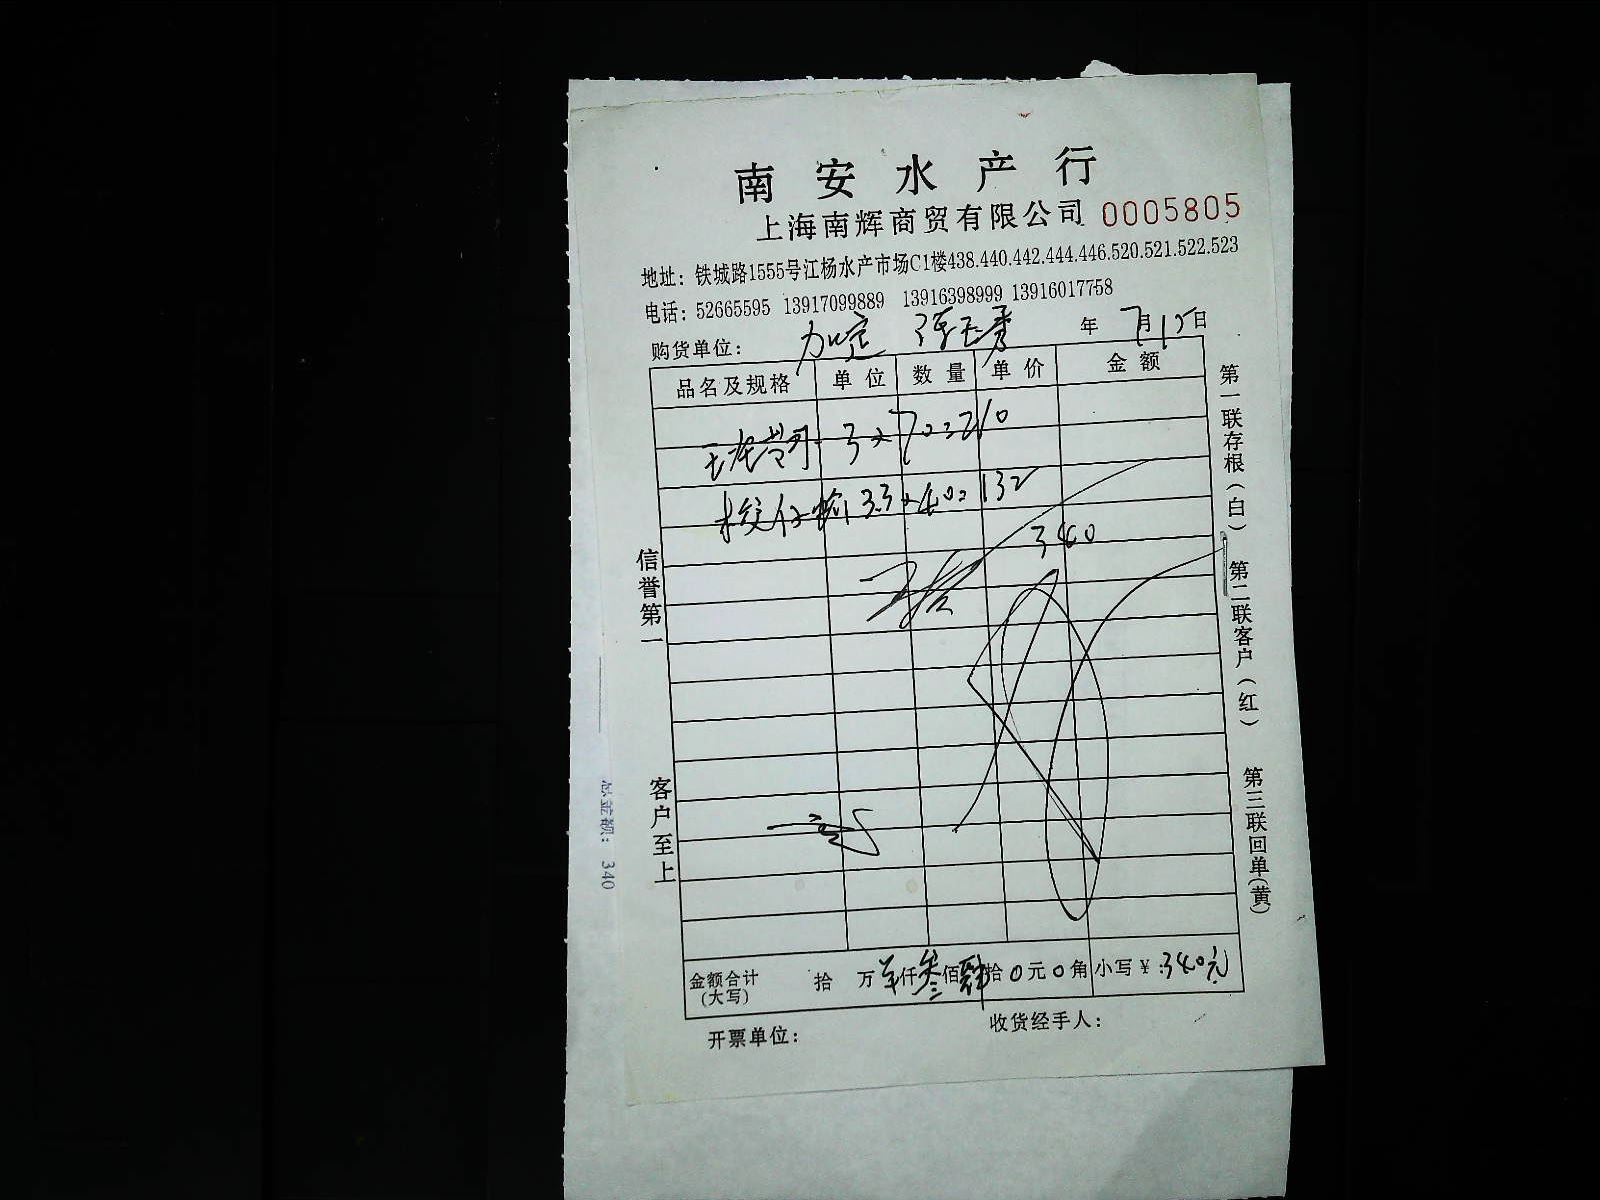 南安水产行
上海南辉商贸有限公司 0005805
地址：铁城路1555号江杨水产市场C1楼438.440.442.444.446.520.521.522.523
电话：52665595 13917099889 13916398999 13916017758
购货单位： 年 7月15日
品名及规格 单位 数量 单价 金额
3×70=210
3.3×40=132
340
信誉第一
客户至上
第一联存根（白）
第二联客户（红）
第三联回单（黄）
总金额： 340
金额合计（大写） 拾 万 仟叁佰肆拾0元0角 小写￥:340元
开票单位： 收货经手人：